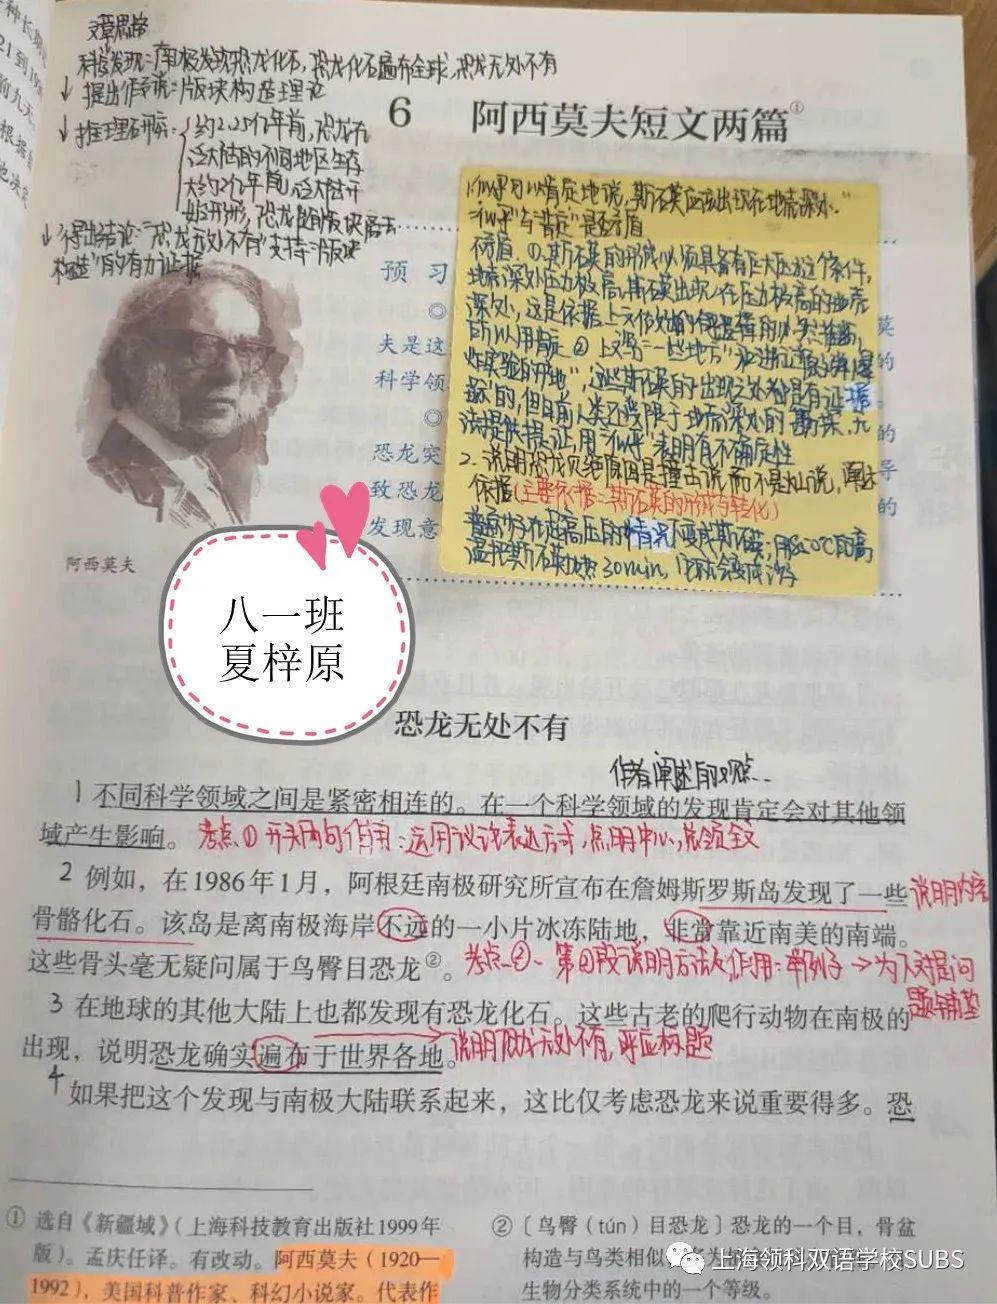 文章思路
科学发现：南极发现恐龙化石，恐龙化石遍布全球，恐龙无处不有
↓提出假说：“版块构造理论
↓推理研究：约2.25亿年前，恐龙在
泛大陆的不同地区生存
大约2亿年前，泛大陆开
始分裂，恐龙随版块离去
↓得出结论：“恐龙无处不有”支持“版块
构造”的有力证据
6 阿西莫夫短文两篇①
预 习
夫是这
科学领
恐龙突
致恐龙
发现意
英
的
的
导
的
1.“似乎可以肯定地说，斯石英应该出现在地壳深处”
“似乎”与“肯定”是否矛盾
不矛盾。①斯石英的形成必须具备有巨大压力这个条件，
地壳深处压力极高，斯石英出现在压力极高的地壳
深处，这是依据上文
所以用肯定 ②上文写“一些地方”“进行过
炸实验的场地”，这些斯石英的出现之处都是有证据
的，但目前人类还受限于地壳深处的勘探，无
法提供据证，用“似乎”表明有不确定性
2.说明恐龙灭绝原因是撞击说而不是火山说，阐述
依据(主要依据：斯石英的形成与转化)
普通沙子在超高压的情况下变成斯石英；用850℃的高
温把斯石英加热30min，它就会变成沙子
阿西莫夫
八一班
夏梓原
恐龙无处不有
作者阐述的观点
1 不同科学领域之间是紧密相连的。在一个科学领域的发现肯定会对其他领
域产生影响。考点① 开头两句作用：运用议论表达方式，点明中心，总领全文
2 例如，在1986年1月，阿根廷南极研究所宣布在詹姆斯罗斯岛发现了一些 说明内容
骨骼化石。该岛是离南极海岸不远的一小片冰冻陆地，非常靠近南美的南端。
这些骨头毫无疑问属于鸟臀目恐龙②。考点②、第②段说明方法及作用：举例子→为下文提问
题铺垫
3 在地球的其他大陆上也都发现有恐龙化石。这些古老的爬行动物在南极的
出现，说明恐龙确实遍布于世界各地。说明恐龙无处不有，呼应标题
4 如果把这个发现与南极大陆联系起来，这比仅考虑恐龙来说重要得多。恐
① 选自《新疆域》（上海科技教育出版社1999年
版）。孟庆任译。有改动。阿西莫夫（1920—
1992），美国科普作家、科幻小说家。代表作
②〔鸟臀（tún）目恐龙〕恐龙的一个目，骨盆
构造与鸟类相似
生物分类系统中的一个等级。
上海领科双语学校SUBS